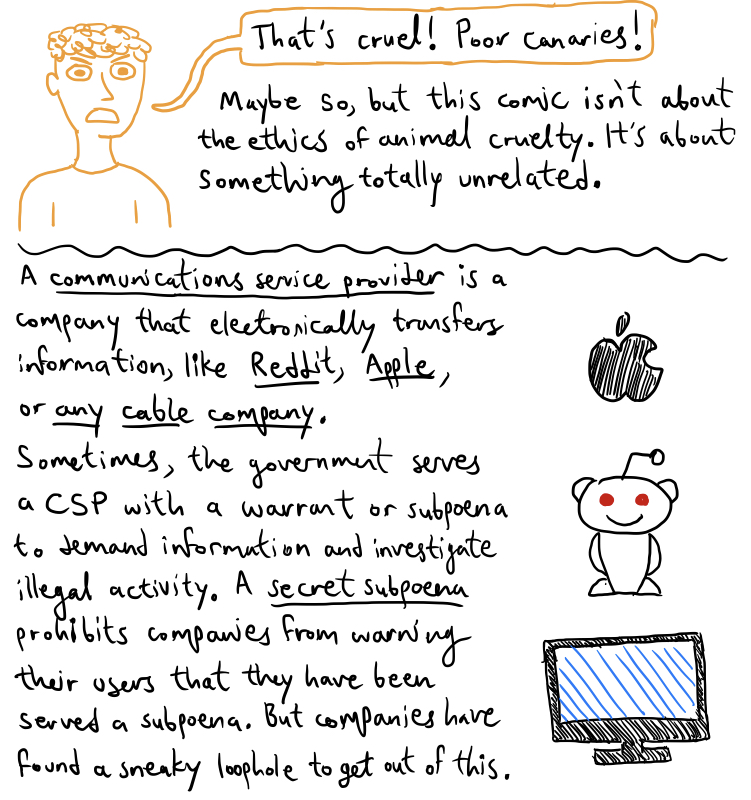 That's cruel! Poor canaries!
Maybe so, but this comic isn't about
the ethics of animal cruelty. It's about
something totally unrelated.
A communications service provider is a
company that electronically transfers
information, like Reddit, Apple,
or any cable company.
Sometimes, the government serves
a CSP with a warrant or subpoena
to demand information and investigate
illegal activity. A secret subpoena
prohibits companies from warning
their users that they have been
served a subpoena. But companies have
found a sneaky loophole to get out of this.